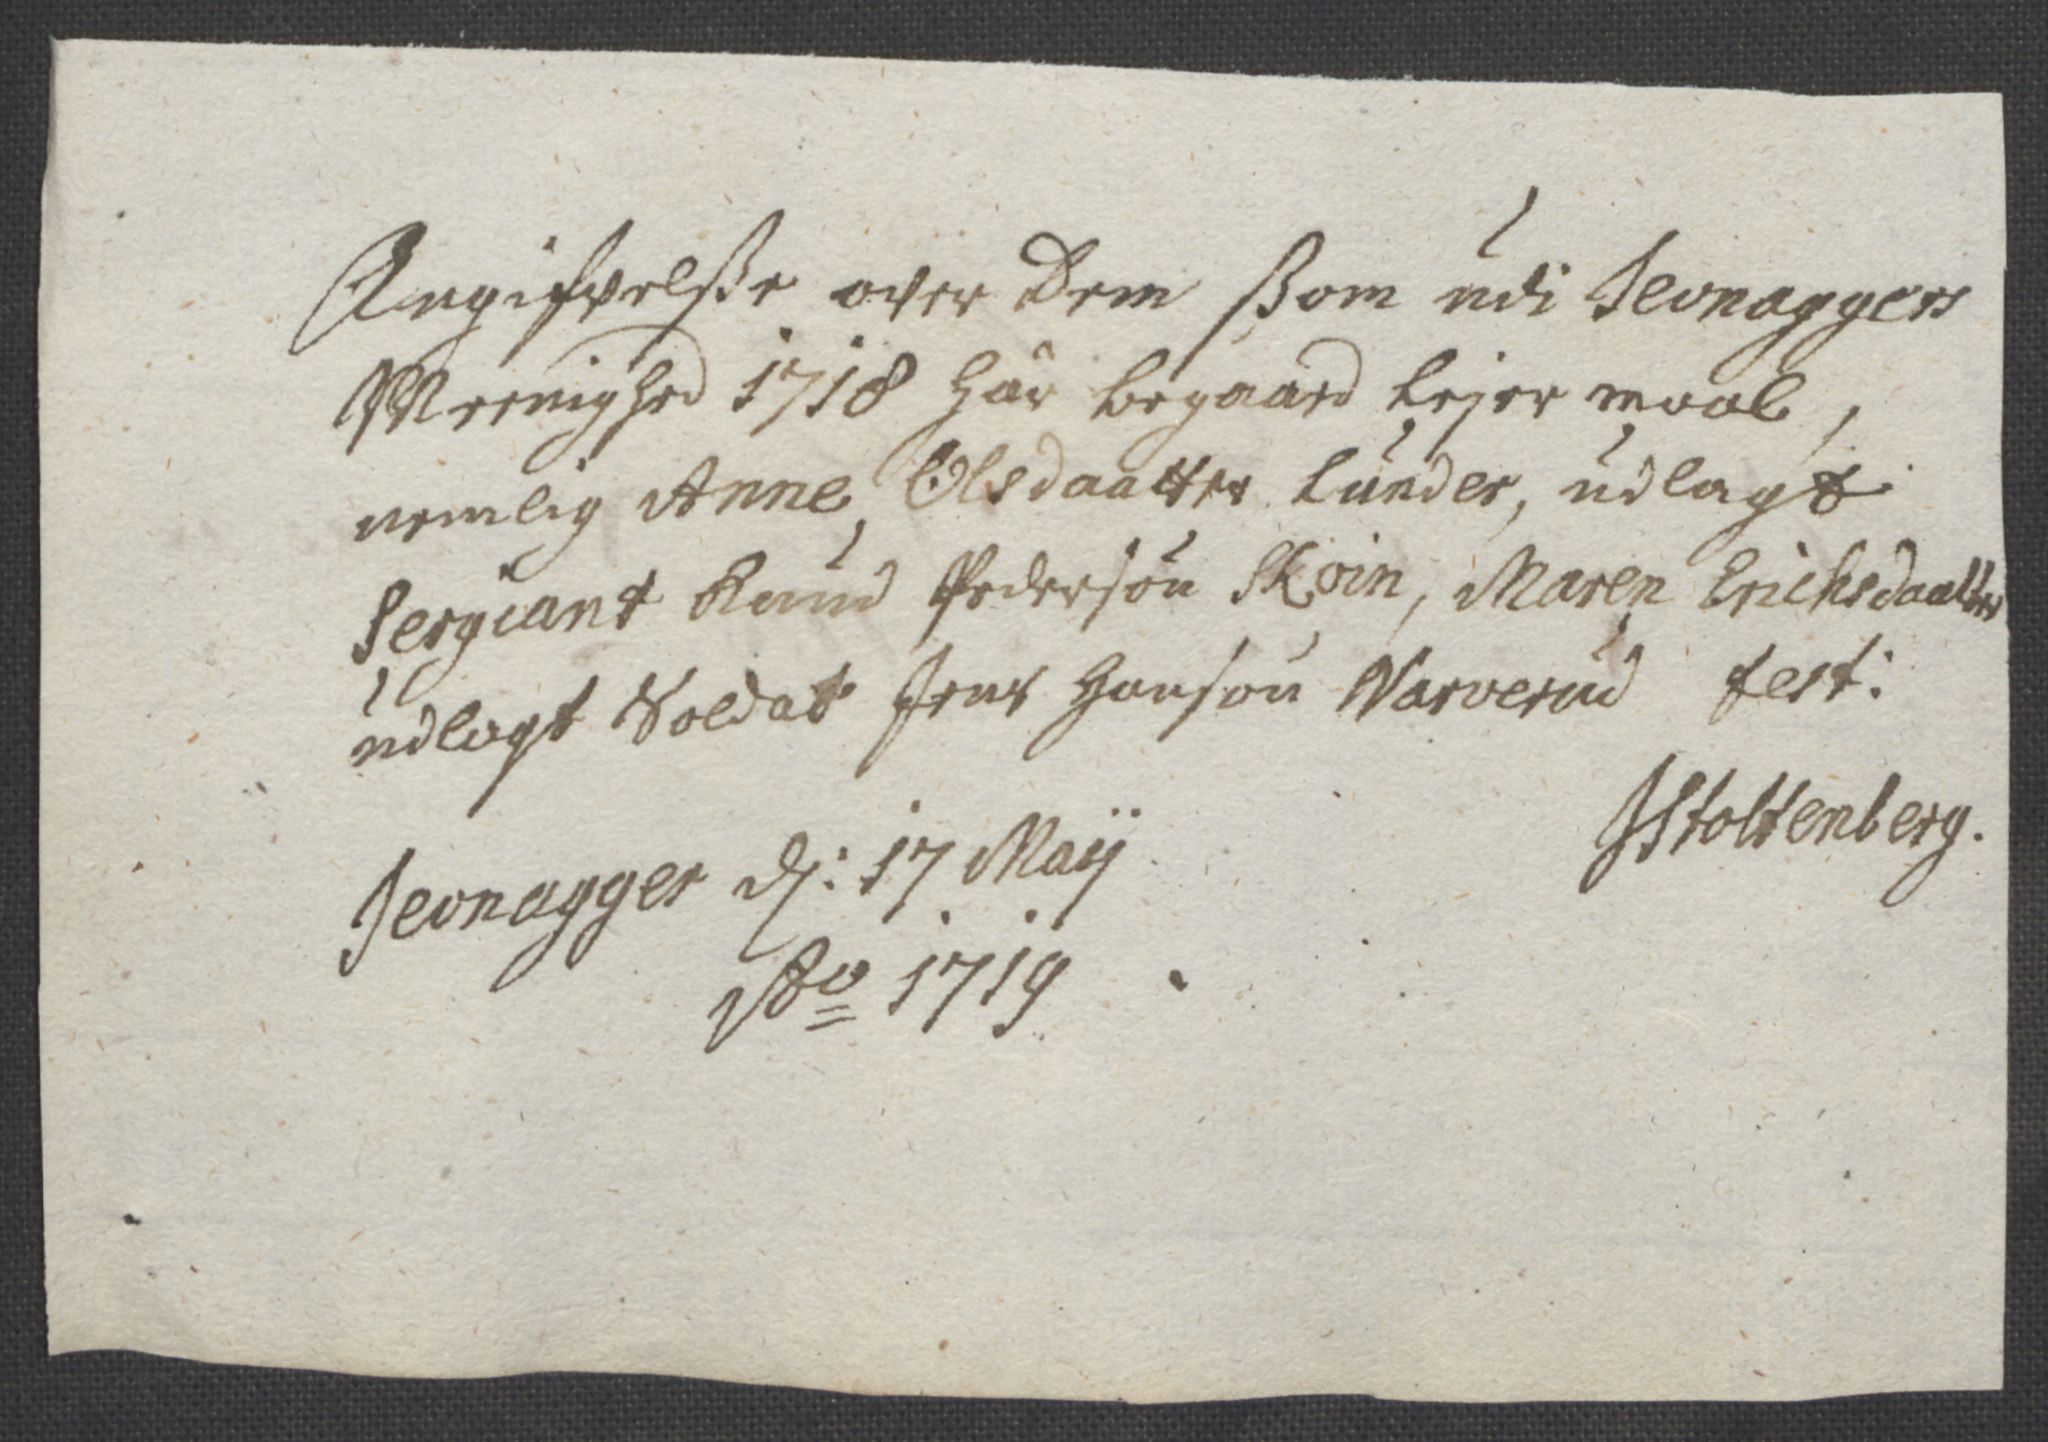 Angifvelße over Dem ßom udi Jevnaggers
Meenighed 1718 har begaaed Lejer maal,
nemlig Anne Olsdaatter Lunder, udlagt
Sergiant Knud Pedersøn Skøin, Maren Erichsdaatter
udlagt Soldat Jens Hansøn Narverud test:
JStoltenberg.
Jevnagger dj: 17 Maij
Ao 1719